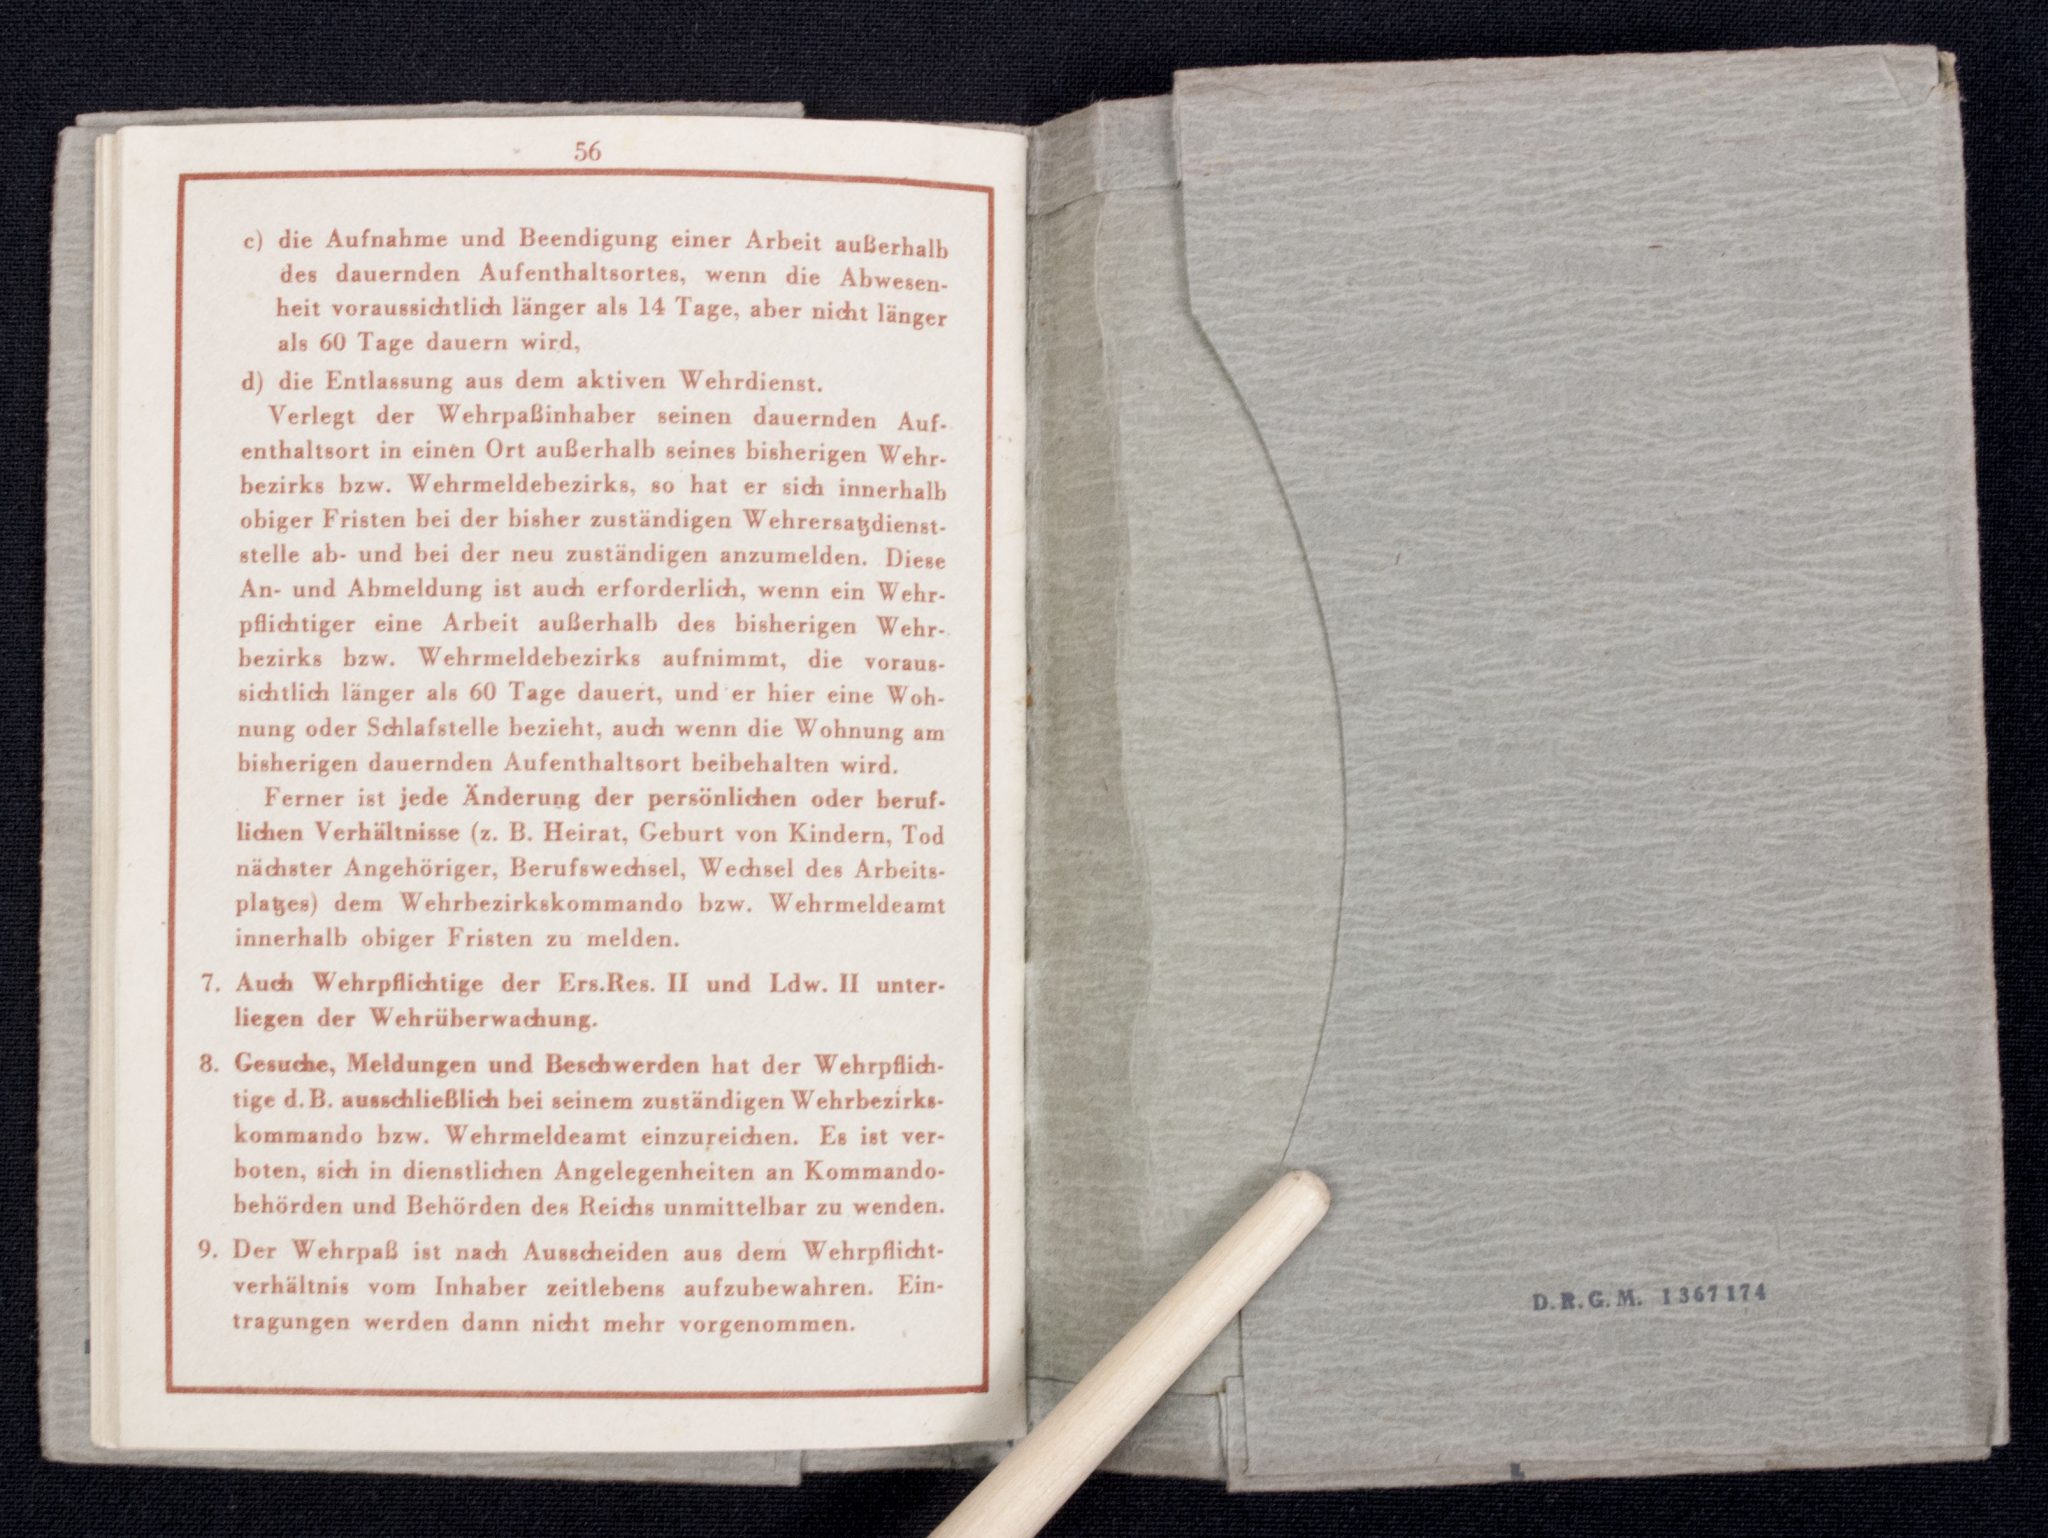 56
c) die Aufnahme und Beendigung einer Arbeit außerhalb
des dauernden Aufenthaltsortes, wenn die Abwesen-
heit voraussichtlich länger als 14 Tage, aber nicht länger
als 60 Tage dauern wird,
d) die Entlassung aus dem aktiven Wehrdienst.
Verlegt der Wehrpaßinhaber seinen dauernden Auf-
enthaltsort in einen Ort außerhalb seines bisherigen Wehr-
bezirks bzw. Wehrmeldebezirks, so hat er sich innerhalb
obiger Fristen bei der bisher zuständigen Wehrersatzdienst-
stelle ab- und bei der neu zuständigen anzumelden. Diese
An- und Abmeldung ist auch erforderlich, wenn ein Wehr-
pflichtiger eine Arbeit außerhalb des bisherigen Wehr-
bezirks bzw. Wehrmeldebezirks aufnimmt, die voraus-
sichtlich länger als 60 Tage dauert, und er hier eine Woh-
nung oder Schlafstelle bezieht, auch wenn die Wohnung am
bisherigen dauernden Aufenthaltsort beibehalten wird.
Ferner ist jede Änderung der persönlichen oder beruf-
lichen Verhältnisse (z. B. Heirat, Geburt von Kindern, Tod
nächster Angehöriger, Berufswechsel, Wechsel des Arbeits-
platzes) dem Wehrbezirkskommando bzw. Wehrmeldeamt
innerhalb obiger Fristen zu melden.
7. Auch Wehrpflichtige der Ers.Res. II und Ldw. II unter-
liegen der Wehrüberwachung.
8. Gesuche, Meldungen und Beschwerden hat der Wehrpflich-
tige d. B. ausschließlich bei seinem zuständigen Wehrbezirks-
kommando bzw. Wehrmeldeamt einzureichen. Es ist ver-
boten, sich in dienstlichen Angelegenheiten an Kommando-
behörden und Behörden des Reichs unmittelbar zu wenden.
9. Der Wehrpaß ist nach Ausscheiden aus dem Wehrpflicht-
verhältnis vom Inhaber zeitlebens aufzubewahren. Ein-
tragungen werden dann nicht mehr vorgenommen.
D. R. G. M. 1367174